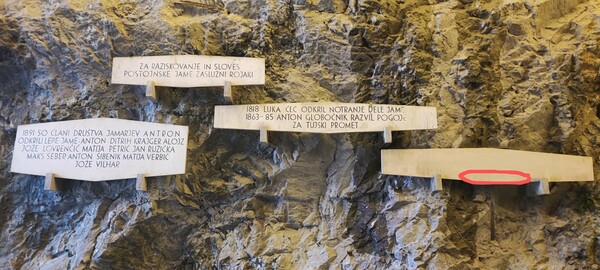 ZA RAZISKOVANJE IN SLOVES
POSTOJNSKE JAME ZASLUŽNI ROJAKI
1818 LUKA ČEČ ODKRIL NOTRANJE DELE JAM
1863-85 ANTON GLOBOČNIK RAZVIL POGOJE
ZA TUJSKI PROMET
1891 SO ČLANI DRUŠTVA JAMARJEV ANTRON
ODKRILI LEPE JAME ANTON DITRIH KRAJGER ALOJZ
JOŽE LOVRENČIČ MATIJA PETRIČ JAN RUŽIČKA
MAKS SEBER ANTON ŠIBENIK MATIJA VERBIČ
JOŽE VILHAR